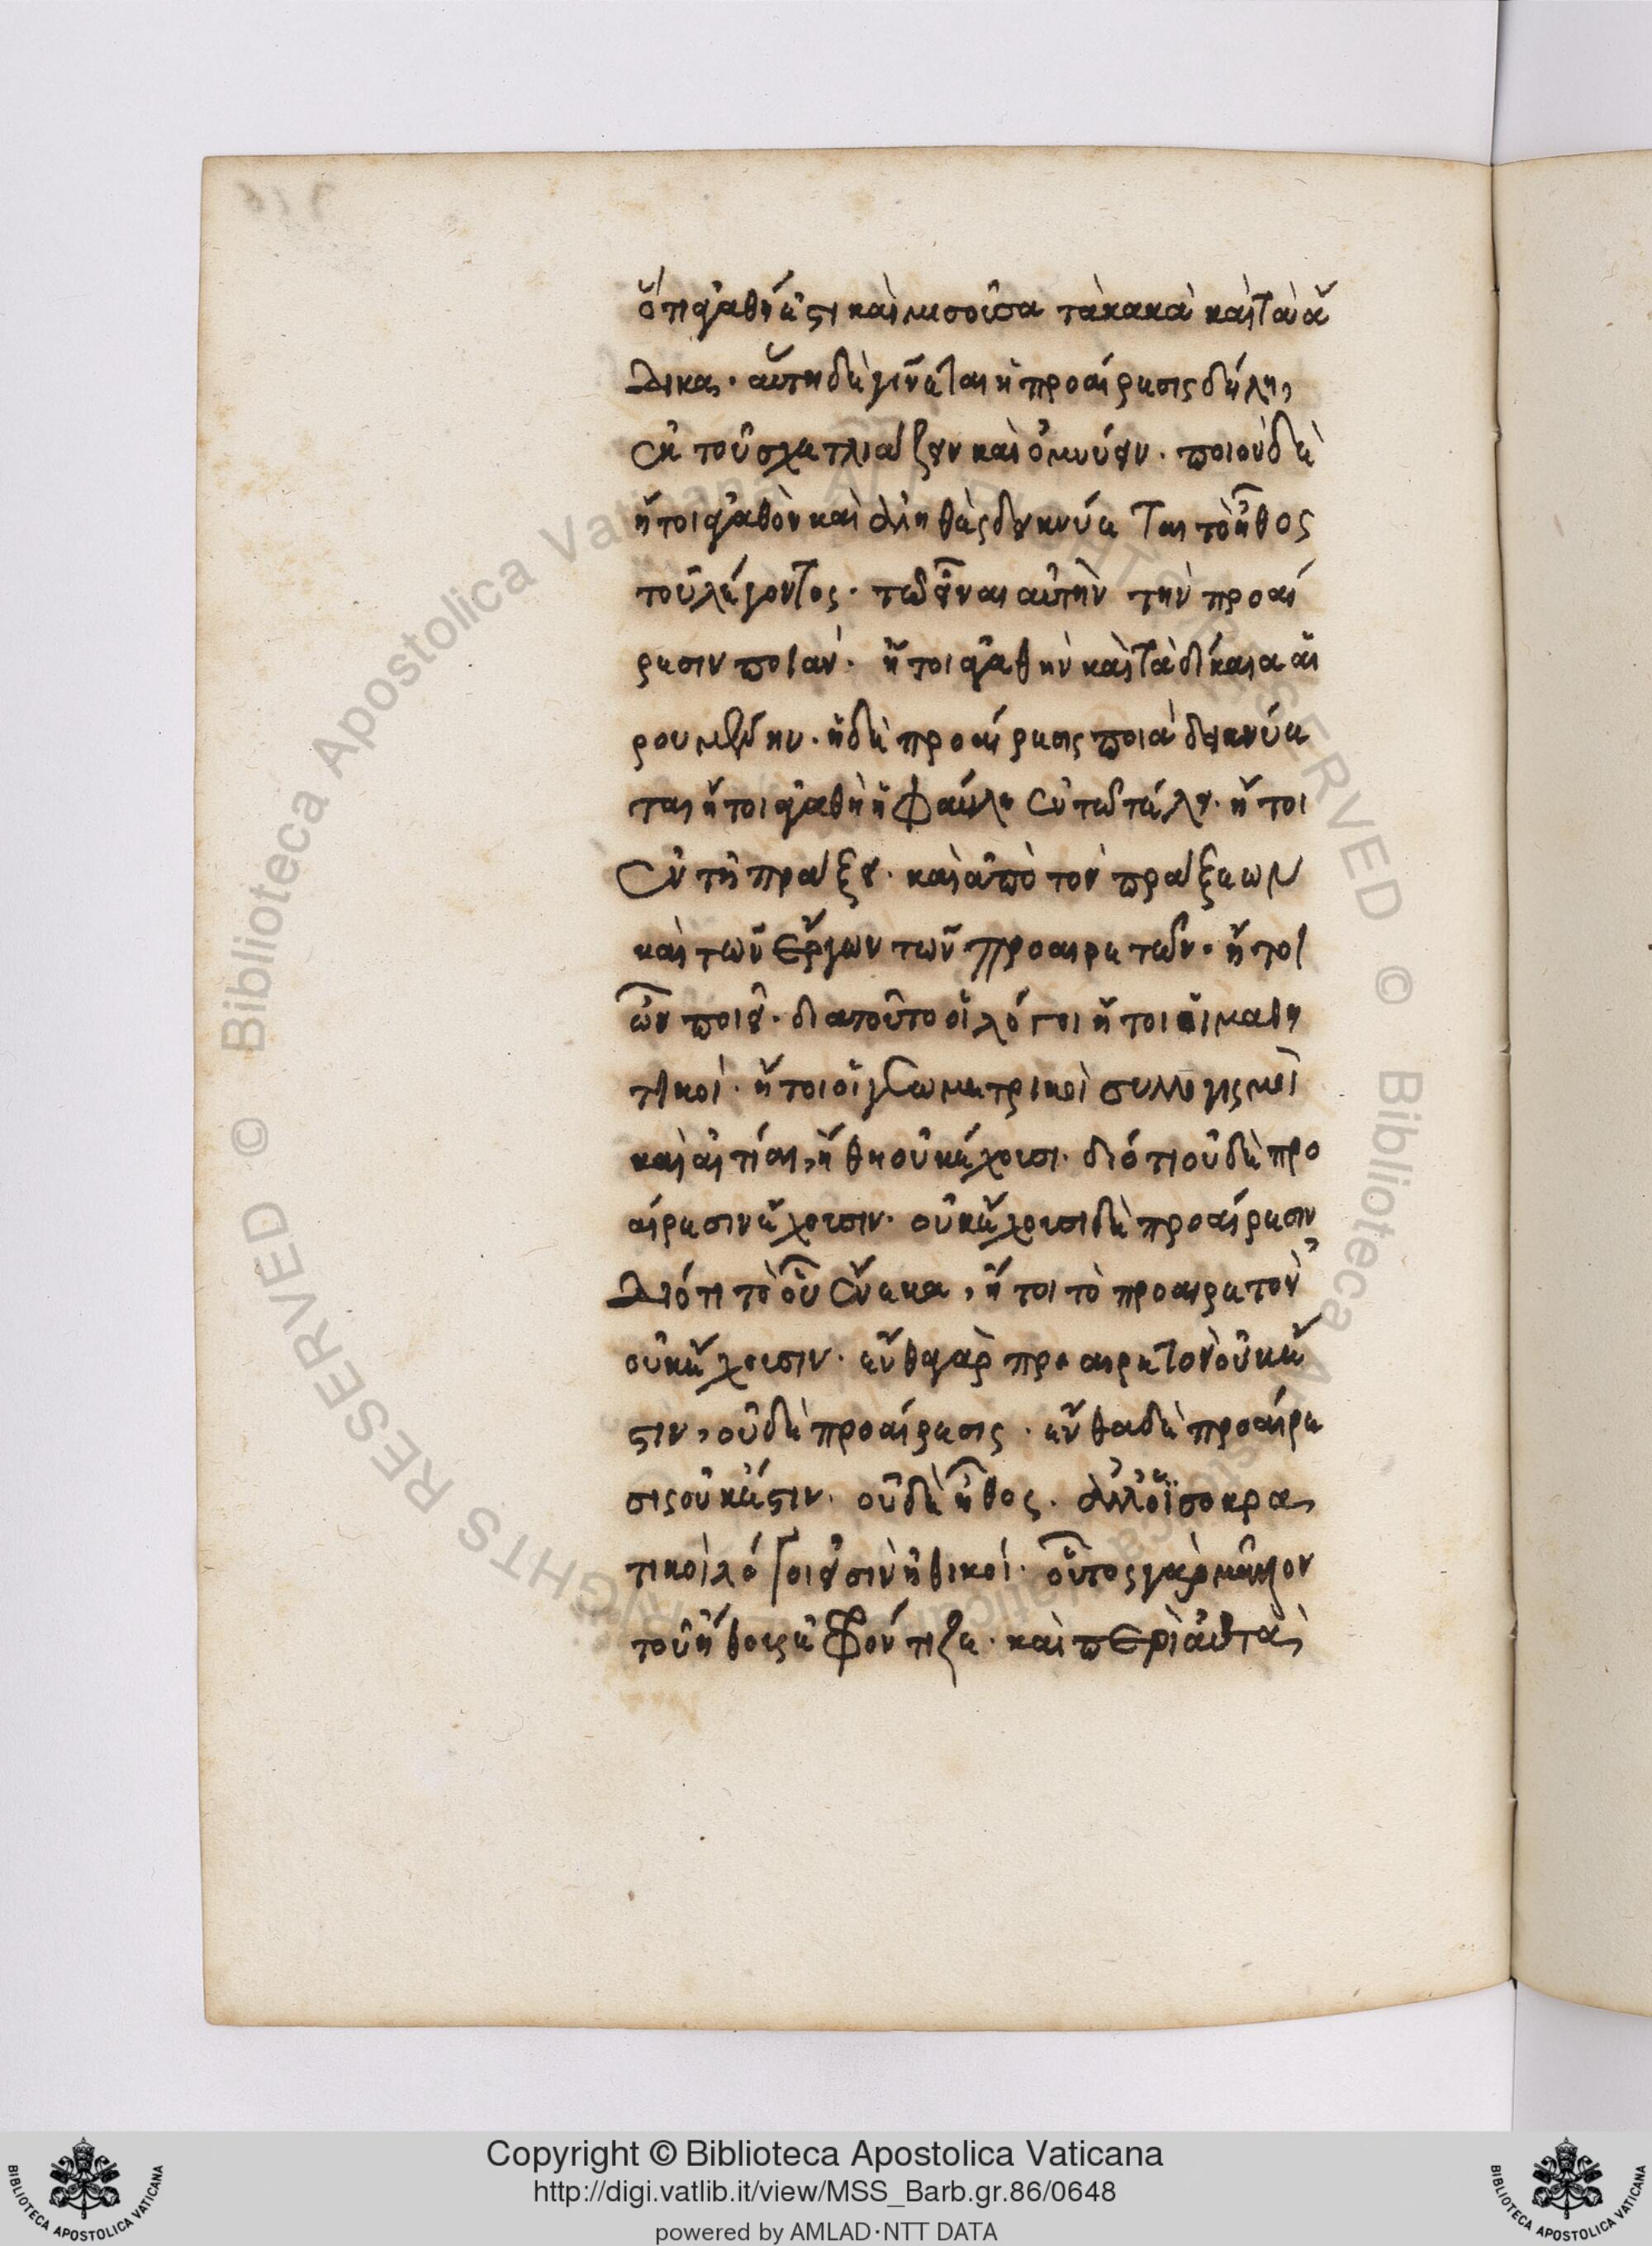 ὅτι ἀγαθή ἐστι καὶ μισοῦσα τὰ κακὰ καὶ τὰ ἄ
δικα. αὕτη δὲ γίνεται ἡ προαίρεσις δήλη,
ἐκ τοῦ σχετλιάζειν καὶ ὀμνύειν. ποιὸν δὲ
ἤτοι ἀγαθὸν καὶ ἀληθὲς δείκνυται τὸ ἦθος
τοῦ λέγοντος. τῷ εἶναι αὐτὴν τὴν προαί
ρεσιν ποιάν. ἤτοι ἀγαθὴν καὶ τὰ δίκαια αἱ
ρουμένην. ἡ δὲ προαίρεσις ποιὰ δεικνύε
ται ἤτοι ἀγαθὴ ἢ φαύλη ἐν τῷ τέλει. ἤτοι
ἐν τῇ πράξει. καὶ ἀπὸ τὸν πράξεων
καὶ τῶν ἔργων τῶν προαιρετῶν. ἤτοι
ὧν ποιεῖ. διατοῦτο οἱ λόγοι ἤτοι οἱ μαθη
τικοὶ. ἤτοι οἱ γεωμετρικοὶ συλλογισμοὶ
καὶ αἰτίαι, ἤθη οὐκ ἔχουσι. διότι οὐδὲ προ
αίρεσιν ἔχουσιν. οὐκ ἔχουσι δὲ προαίρεσιν
διότι τὸ οὗ ἕνεκα, ἤτοι τὸ προαιρετὸν
οὐκ ἔχουσιν. ἔνθα γὰρ προαιρετὸν οὐκ ἔ
στιν, οὐδὲ προαίρεσις. ἔνθα δὲ προαίρε
σις οὐκ ἔστιν. οὐδὲ ἦθος. ἀλλ' οἱ σοκρα
τικοὶ λόγοι εἰσὶν ἠθικοί. οὗτος γὰρ μᾶλλον
τοῦ ἤθους ἐφρόντιζε. καὶ περὶ αὐτὰ,
Copyright © Biblioteca Apostolica Vaticana
http://digi.vatlib.it/view/MSS_Barb.gr.86/0648
powered by AMLAD·NTT DATA